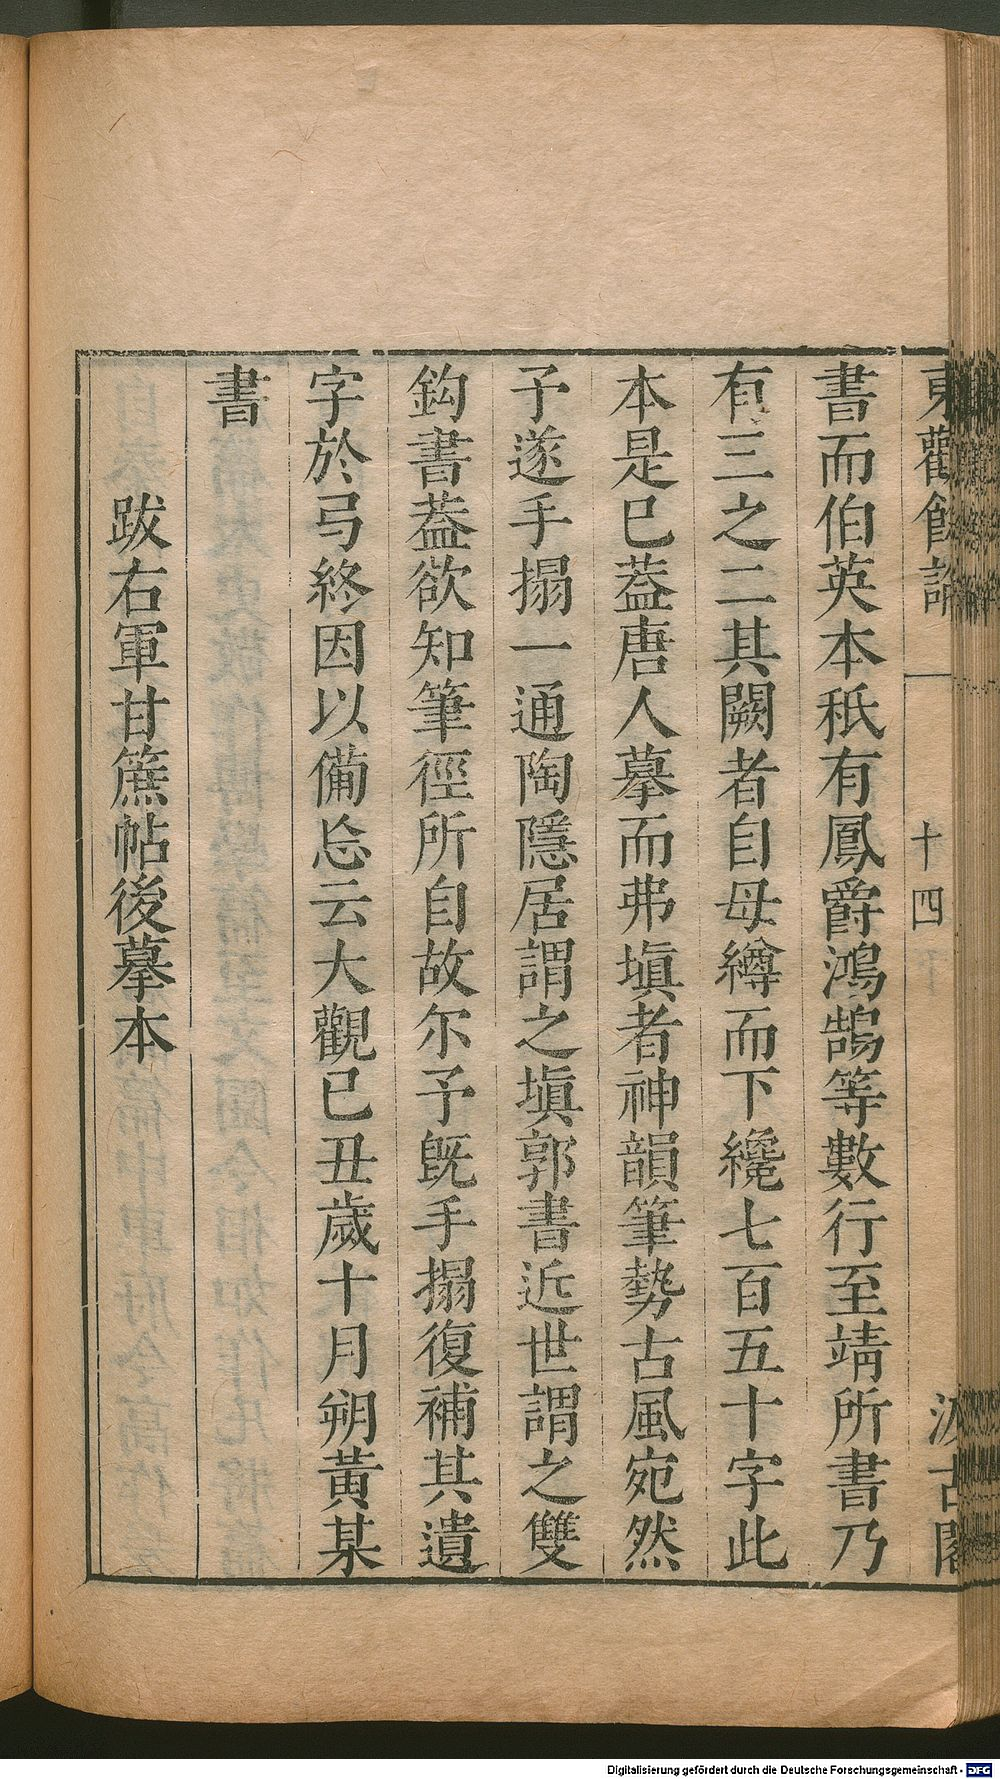 東觀餘論 十四 汲古閣
書而伯英本秖有鳳爵鴻鵠等數行至靖所書乃
有三之二其闕者自母縛而下纔七百五十字此
本是已葢唐人摹而弗塡者神韻筆勢古風宛然
予遂手搨一通陶隱居謂之塡郭書近世謂之雙
鈎書葢欲知筆徑所自故尔予旣手搨復補其遺
字於弓終因以備忘云大觀已丑歲十月朔黃某
書
跋右軍甘蔗帖後摹本
Digitalisierung gefördert durch die Deutsche Forschungsgemeinschaft - DFG